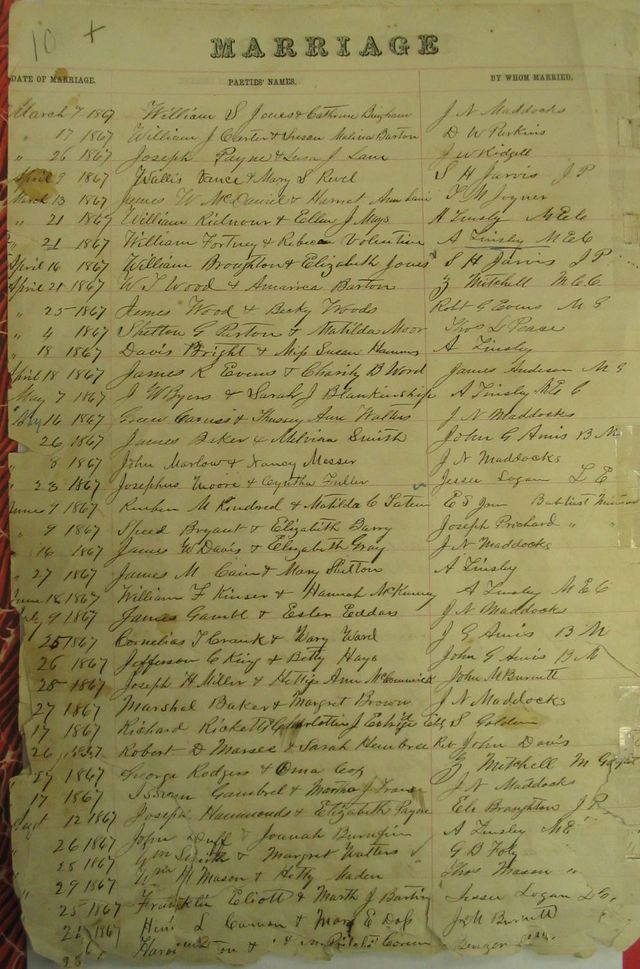 10 +
MARRIAGE
DATE OF MARRIAGE. PARTIES' NAMES. BY WHOM MARRIED.
March 7 1867 William S Jones & Cathrine Bingham J N Maddocks
" 17 1867 William J Carter & Susan Malina Barton D W Parkins
" 26 1867 Joseph Payne & J Lane J W Kidgell
April 9 1867 Wallis Vance & Mary S Revel S H Jarvis J P
March 13 1867 James W McDaniel & Harriet Ann T M Joyner
" 21 1867 William Ridnour & Ellen J Mays A Tinsly M E C
" 21 1867 William Fortney & Rebeca Volentine A Tinsley M E C
April 16 1867 William Broughton & Elizabeth Jones S H Jarvis J P
April 21 1867 W T Wood & Amarica Barton Z Mitchell M C C
" 25 1867 James Wood & Becky Woods Robt G Evens M G
" 4 1867 Shelton G Parton & Matilda Moor Thos L Pease
" 18 1867 Davis Bright & Miss Susan Hammons A Tinsley
April 18 1867 James R Evens & Charity B Word James Anderson M G
May 7 1867 J W Byers & Sarah J Blankinship A Tinsley M E C
May 16 1867 Ann Walters J N Maddocks
" 26 1867 James Baker & Melvina Smith John G Amis B M
" 3 1867 John Marlow & Nancy Messer J N Maddocks
" 23 1867 Josephus Moore & Cyntha Fuller Jesse Logan L E
June 9 1867 Reuben M Kindred & Matilda C Tatum E S Jones Babtist Minister
" 9 1867 Speed Bryant & Elizabeth Barry Joseph Prichard " "
" 16 1867 James W Davis & Elizabeth Gray J N Maddocks
" 27 1867 James M Cain & Mary Shelton A Tinsley
June 18 1867 William F Kinser & Hannah McKinney A Tinsley M E C
July 9 1867 James Gambl & Ester Eddars J N Maddocks
25 1867 Cornelias T Crank & Mary Ward J G Amis B M
26 1867 Jefferson C King & Betty Hays John G Amis B M
25 1867 Joseph H Miller & Hettys Ann McCommick John McBurnett
27 1867 Marshal Baker & Margret Brown J N Maddocks
17 1867 Richard Ricketts & J S Golden
26 1867 Robert D Marsee & Sarah Hembree Rev John Davis
27 1867 George Rodgers & Oma Cox Z Mitchell M
17 1867 Gambrel & Martha J J N Maddocks
12 1867 Joseph Hammonds & Elizabeth Payne Eli Broughton J P
26 1867 John Duff & Joanah A Tinsley M E
28 1867 Wm Smith & Margret Watters G B Foley
29 1867 M Mason & Betty Thos Mason "
25 1867 Franklin Eliott & Marth J Bartin Jesse Logan
21 1867 L & Mary E J M Burnett
28 &